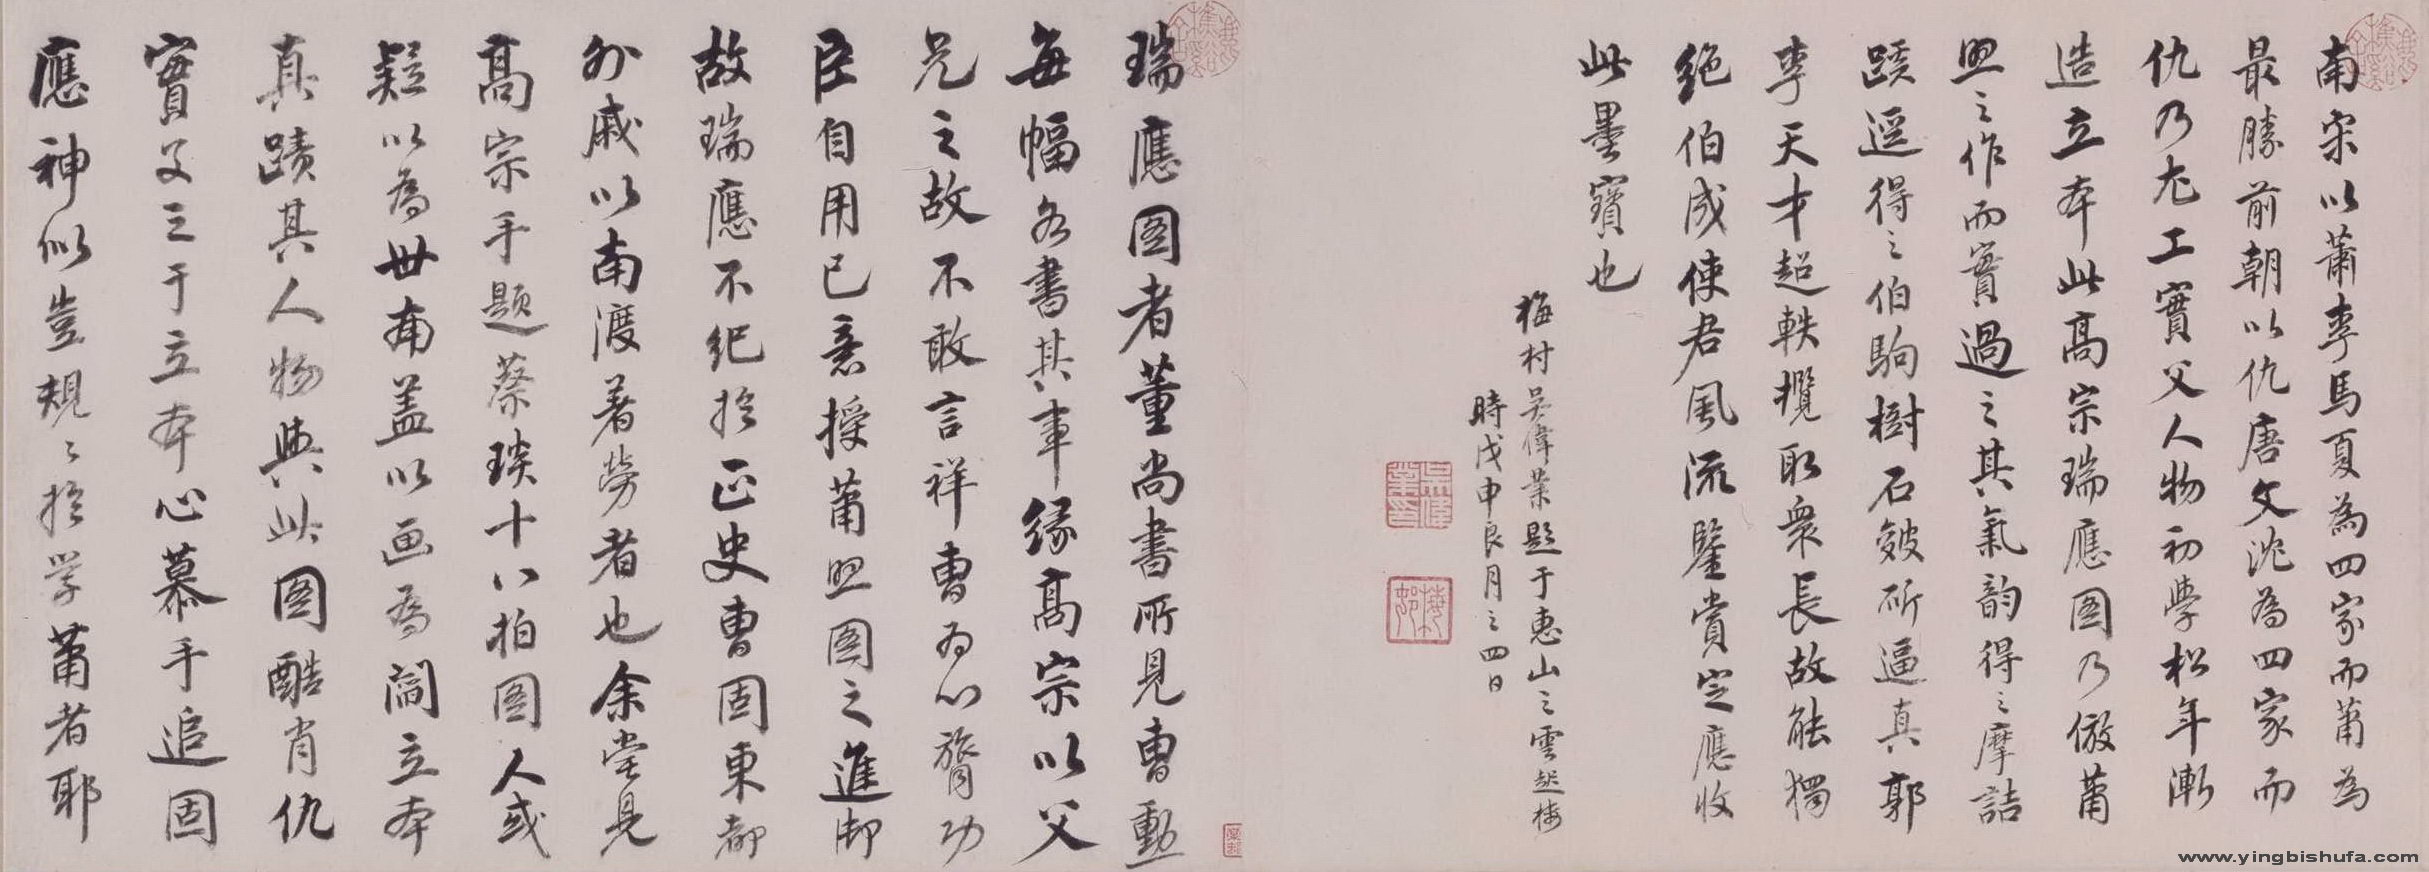 南宋以蕭李馬夏為四家而蕭為
最勝前朝以仇唐文沈為四家而
仇乃尤工實父人物初學松年漸
造立本此高宗瑞應图乃倣蕭
照之作而實過之其氣韵得之摩詰
蹊逕得之伯駒樹石皴斫逼真郭
李天才超軼攬取衆長故能獨
絕伯成使君風流鑒賞定應收
此墨寶也
梅村吴偉業題于惠山之雲起樓
時戊申良月之四日
吳偉業印
梅邨
瑞應图者董尚書所見曹勳
每幅各書其事緣高宗以父
兄之故不敢言祥曹為心膂功
臣自用己意授蕭照图之進御
故瑞應不纪於正史曹固東都
外戚以南渡著勞者也余嘗見
高宗手題蔡琰十八拍图人或
疑以為世南盖以画為閻立本
真蹟其人物與此图酷肖仇
實父三于立本心慕手追固
應神似豈規之於学蕭者耶
www.yingbishufa.com